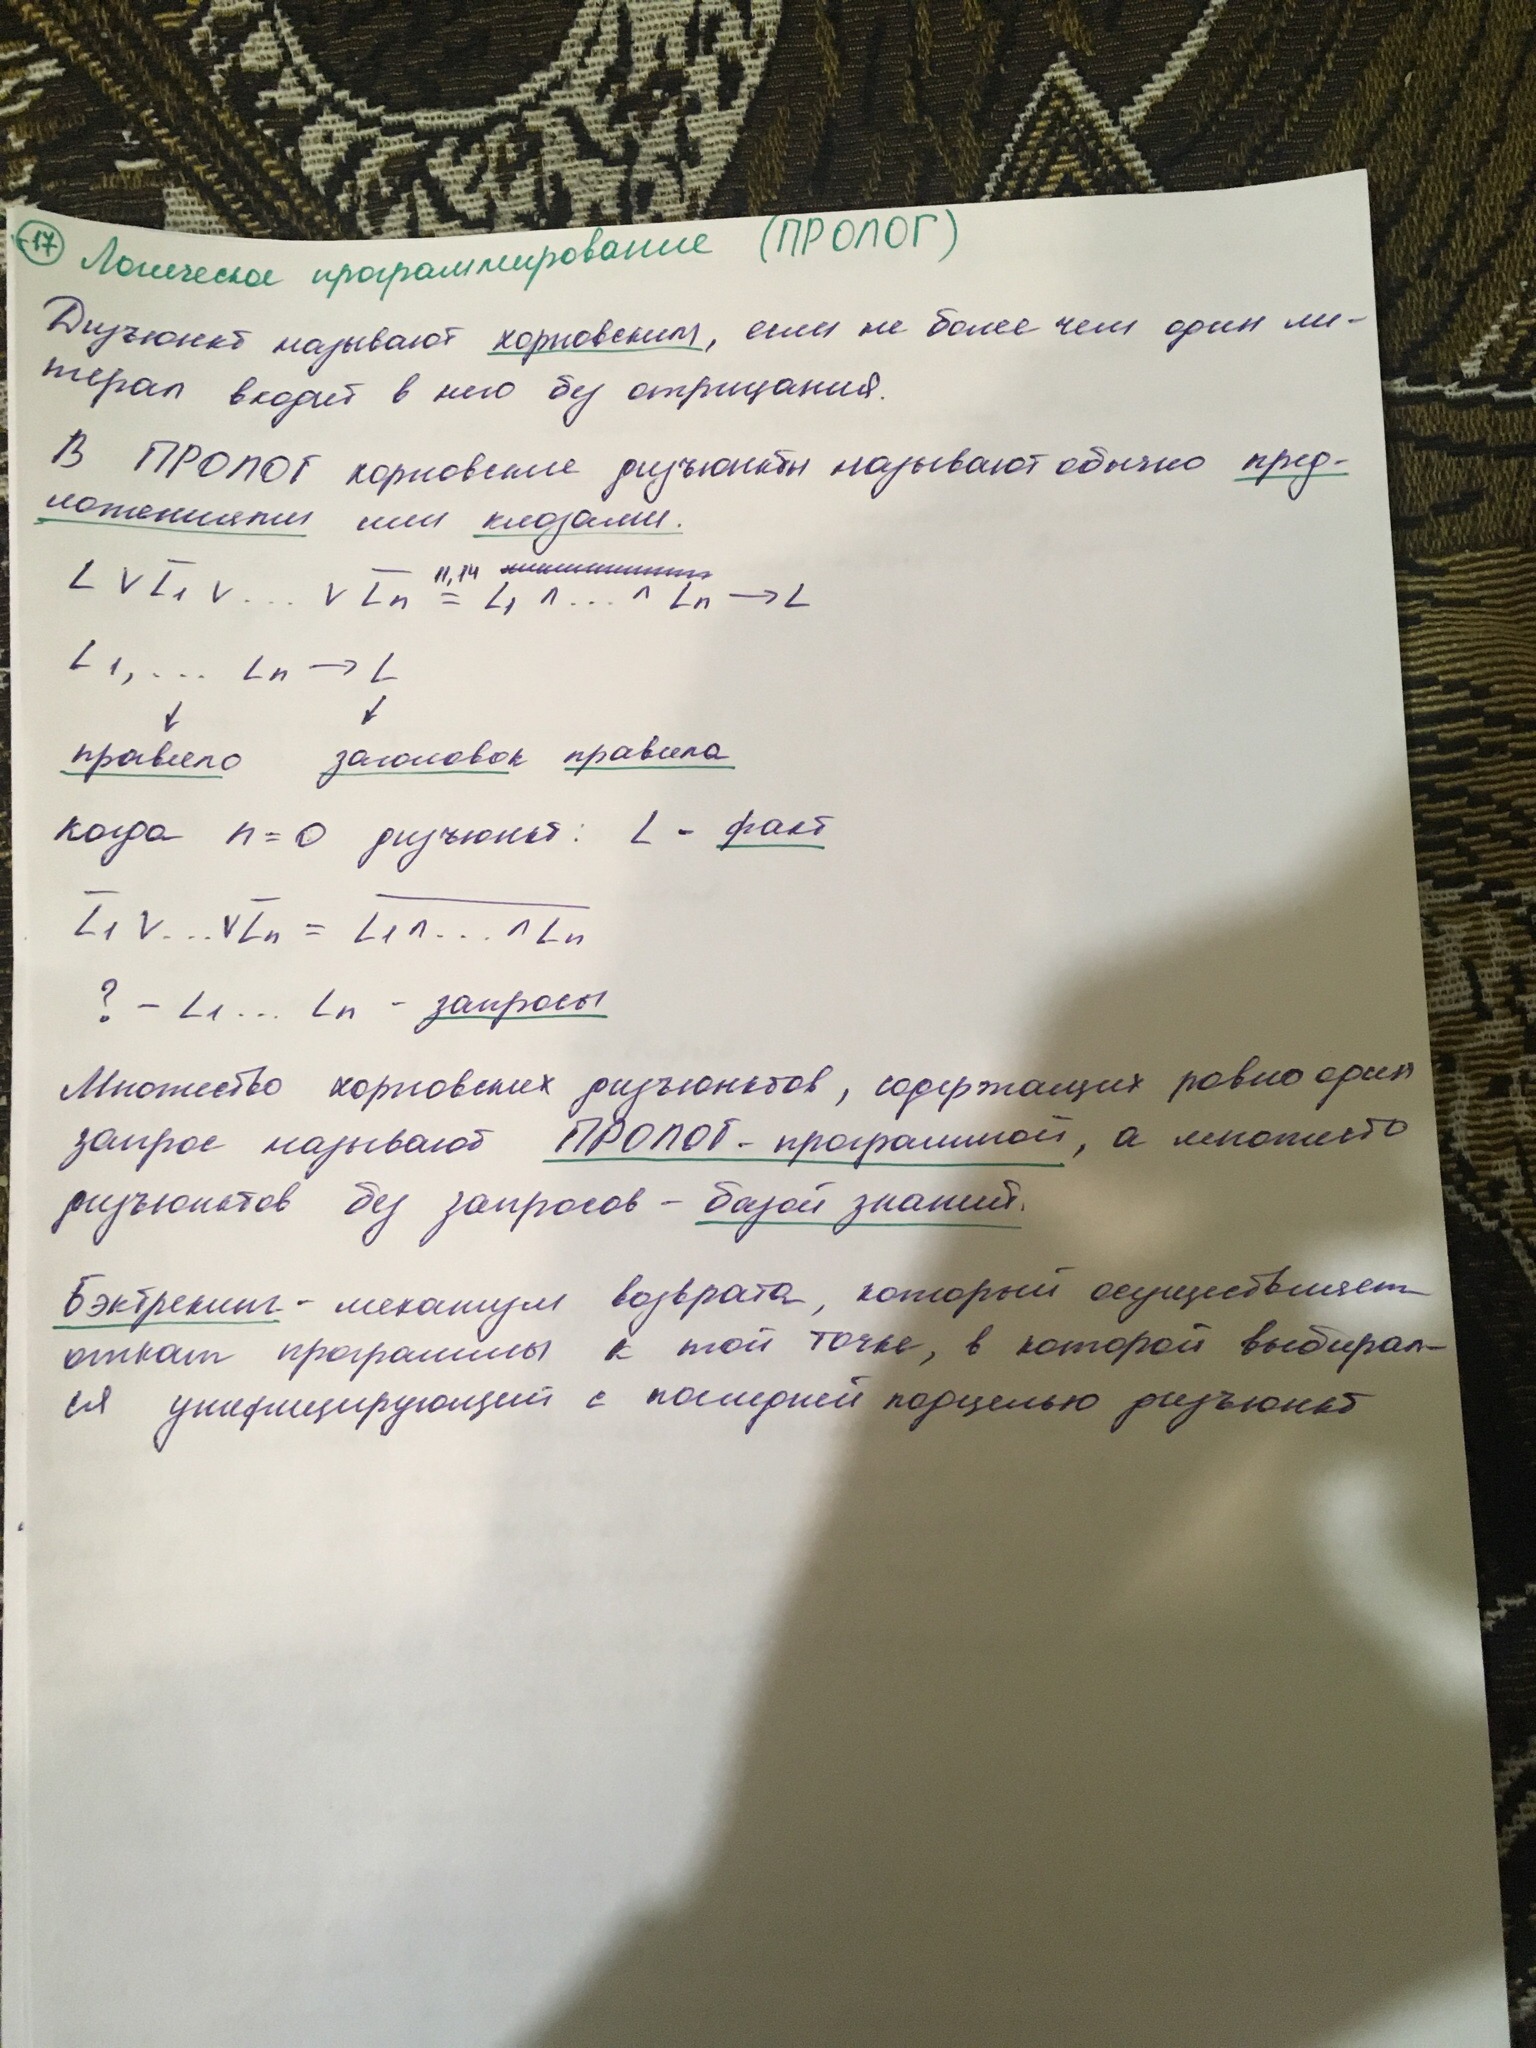 17 Логическое программирование (ПРОЛОГ)
Дизъюнкт называют хорновским, если не более чем один ли-
терал входит в него без отрицания.
В ПРОЛОГ хорновские дизъюнкты называют обычно пред-
ложениями или клозами.
L ∨ L̅₁ ∨ ... ∨ L̅ₙ = L₁ ∧ ... ∧ Lₙ → L
11, 14
L₁, ... Lₙ → L
↓ ↓
правило заголовок правила
когда n = 0 дизъюнкт: L - факт
L̅₁ ∨ ... ∨ L̅ₙ = \overline{L₁ ∧ ... ∧ Lₙ}
? - L₁ ... Lₙ - запросы
Множество хорновских дизъюнктов, содержащих ровно один
запрос называют ПРОЛОГ-программой, а множесто
дизъюнктов без запросов - базой знаний.
Бэктрекинг - механизм возврата, который осуществляет
откат программы к той точке, в которой выбирал-
ся унифицирующий с последней подцелью дизъюнкт